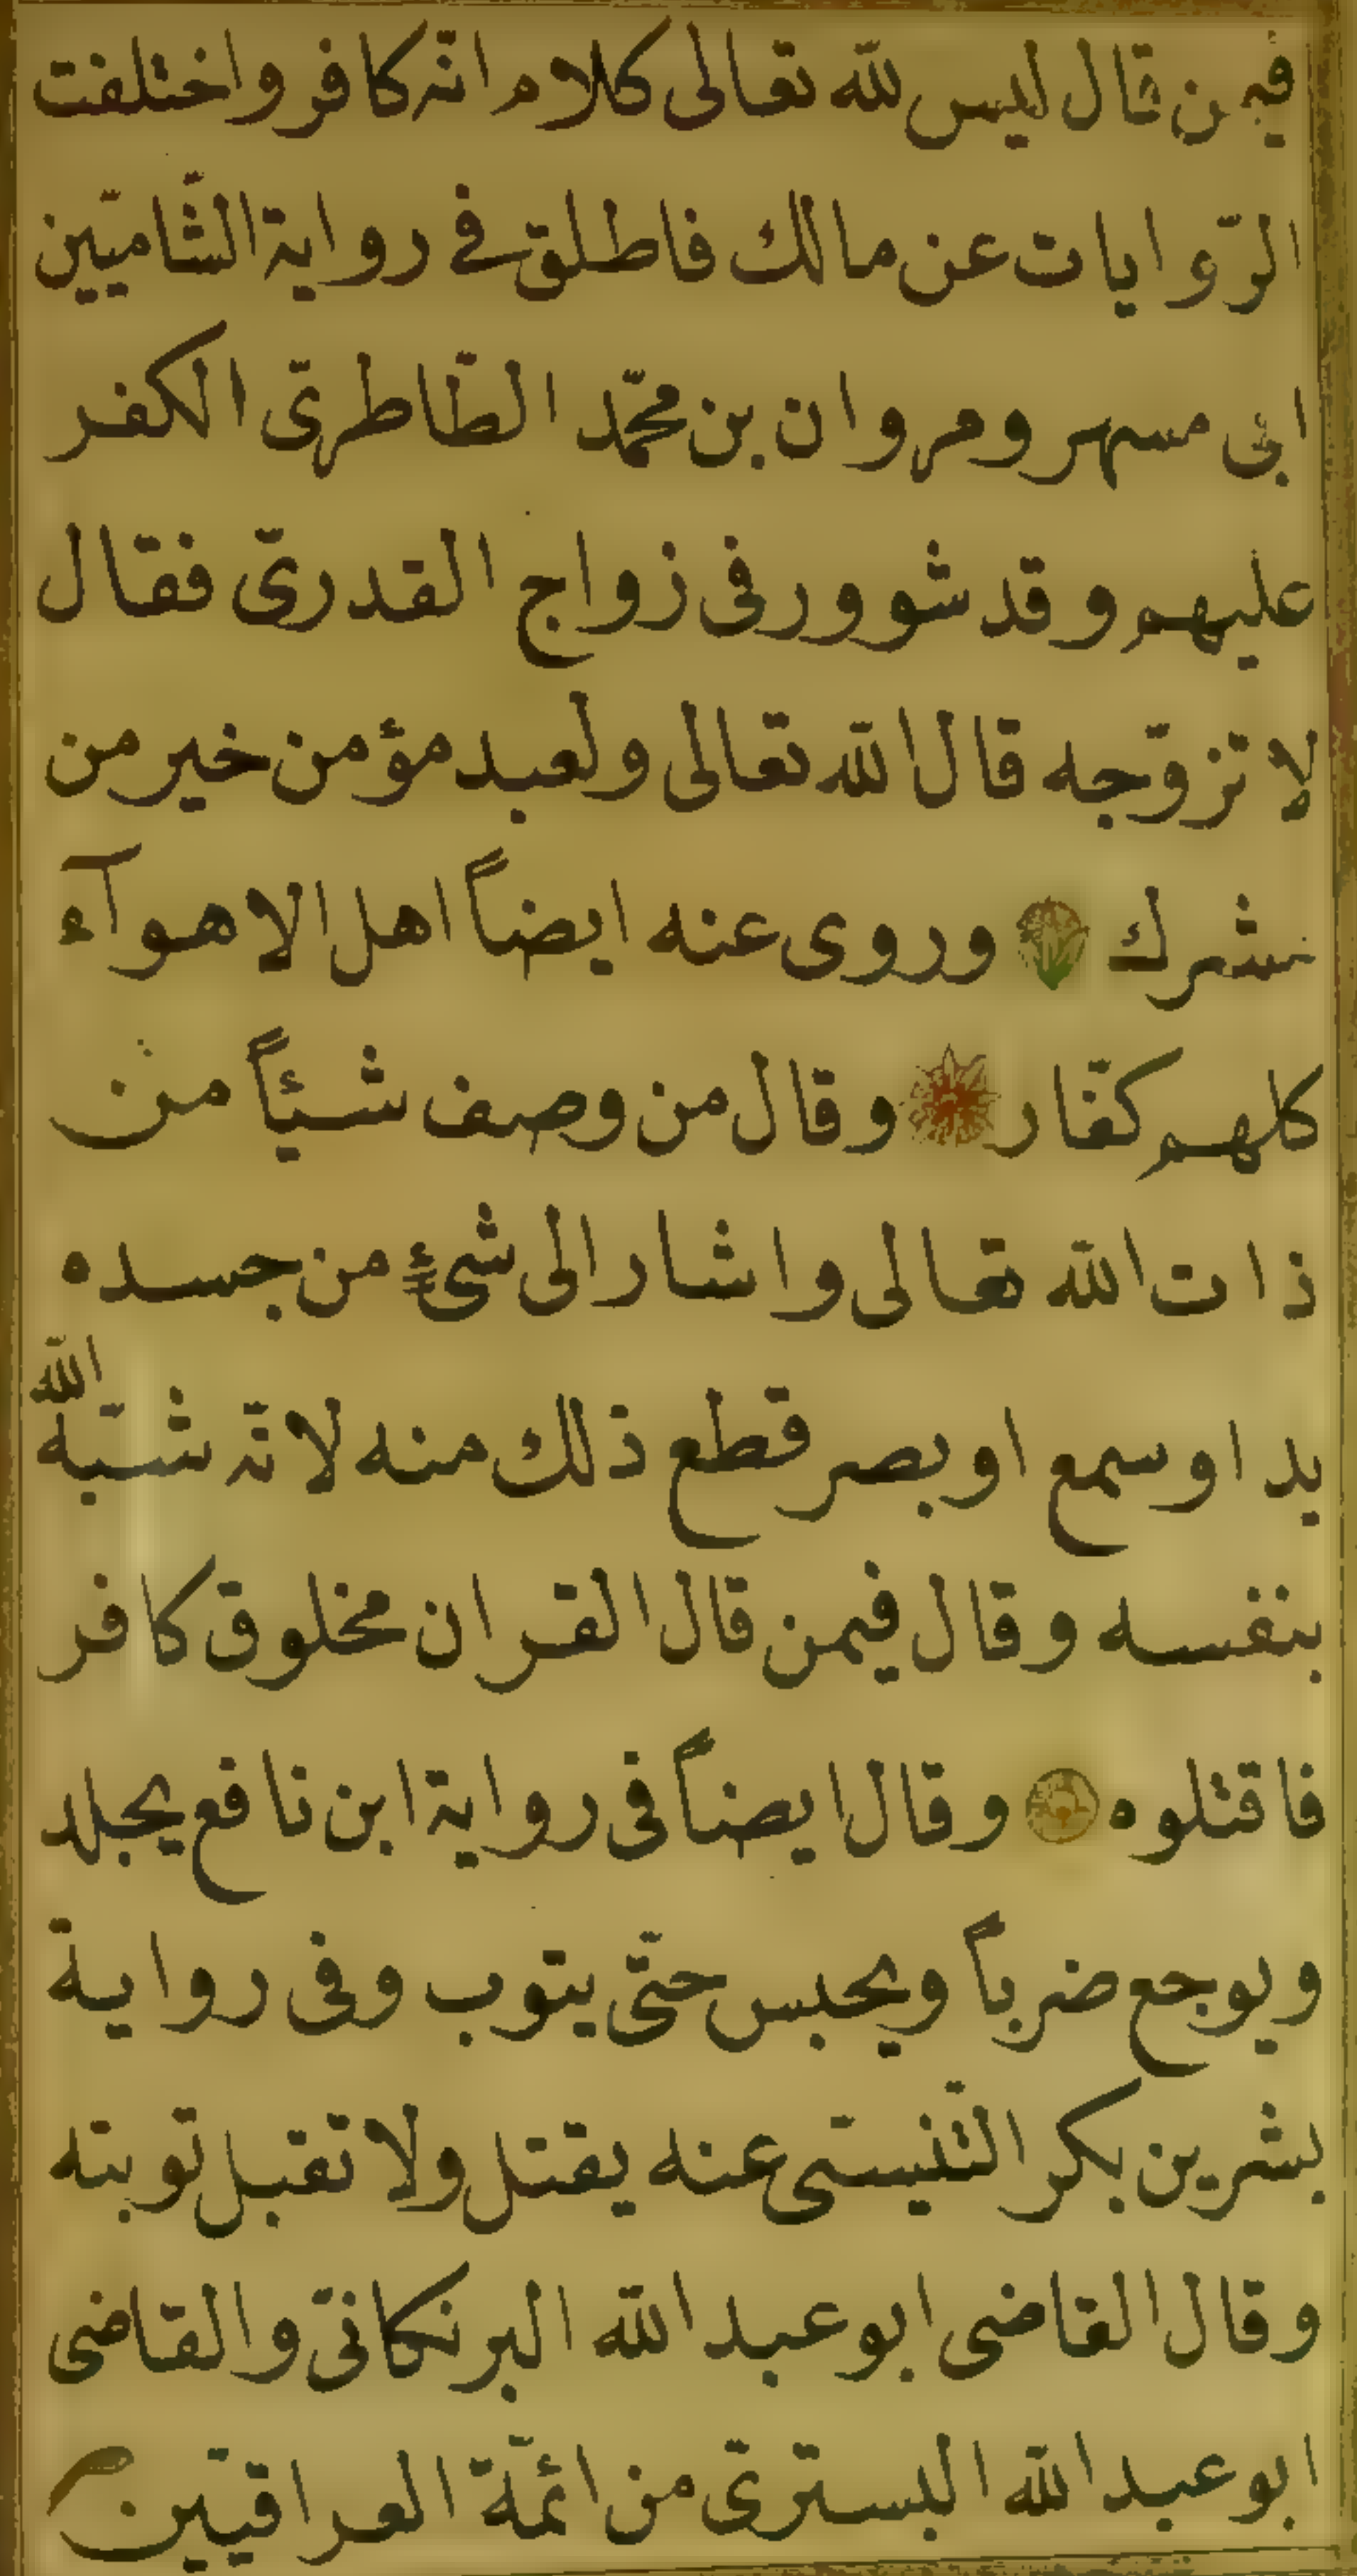 فيمن قال ليس لله تعالى كلام انّه كافر واختلفت
الرّوايات عن مالك فاطلق في رواية الشّاميّين
ابى مسهر ومروان بن محمّد الطّاطرىّ الكفر
عليهم وقد شوور فى زواج القدرىّ فقال
لا تزوّجه قال الله تعالى ولعبد مؤمن خير من
مشرك وروى عنه ايضاً اهل الاهوآء
كلهم كفّار وقال من وصف شيئاً من
ذات الله تعالى واشار الى شئ من جسده
يد او سمع او بصر قطع ذلك منه لانّه شبّه الله
بنفسه وقال فيمن قال القران مخلوق كافر
فاقتلوه وقال ايضاً فى رواية ابن نافع يجلد
ويوجع ضرباً ويحبس حتّى يتوب وفى رواية
بشر بن بكر التّنيسى عنه يقتل ولا تقبل توبته
وقال القاضى ابو عبد الله البرنكانىّ والقاضى
ابو عبد الله البسترىّ من ائمّة العراقيّين